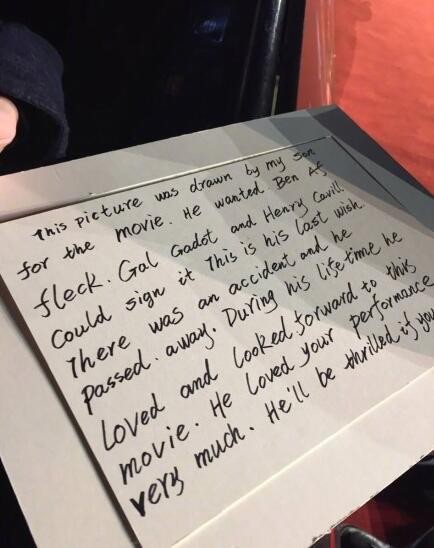 This picture was drawn by my son
for the movie. He wanted Ben Af
fleck. Gal Gadot and Henry Cavill.
Could sign it This is his last wish.
There was an accident and he
passed. away. During his lifetime he
Loved and Looked forward to this
movie. He Loved your performance
very much. He'll be thrilled if you